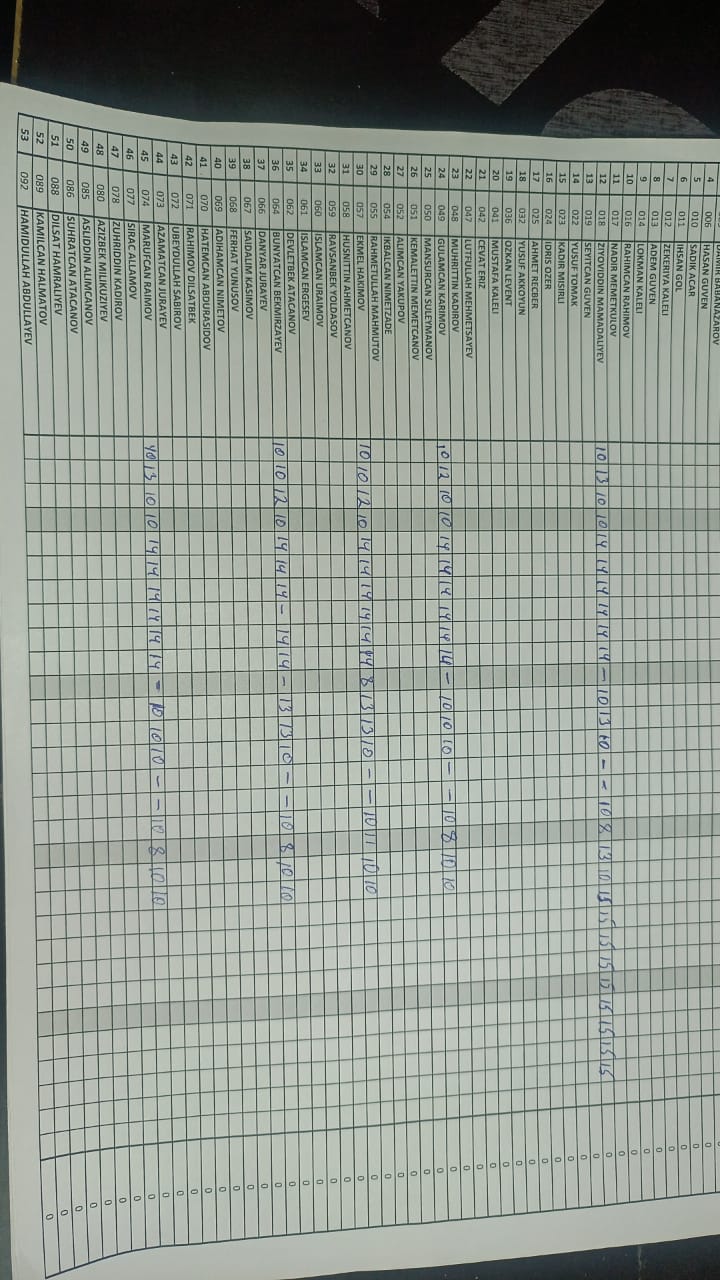 DAMIR BABANAZAROV 0
4 006 HASAN GUVEN 0
5 010 SADIK ACAR 0
6 011 IHSAN GOL 0
7 012 ZEKERIYA KALELI 0
8 013 ADEM GUVEN 0
9 014 LOKMAN KALELI 0
10 016 RAHIMCAN RAHIMOV 0
11 017 NADIR MEMETKULOV 0
12 018 ZIYOVIDDIN MAMADALIYEV 10 13 10 10 14 14 14 14 14 14 - 10 13 10 - - 10 8 13 10 15 15 15 15 15 15 15 15 15 0
13 019 SEYITCAN GUVEN 0
14 022 YUSUF TOMAK 0
15 023 KADIR MISIRLI 0
16 024 IDRIS OZER 0
17 025 AHMET RECBER 0
18 032 YUSUF AKKOYUN 0
19 036 OZKAN LEVENT 0
20 041 MUSTAFA KALELI 0
21 042 CEVAT ERIZ 0
22 047 LUTFULLAH MEHMETSAYEV 0
23 048 MUHRITTIN KADIROV 0
24 049 GULAMCAN KARIMOV 10 12 10 10 14 14 14 14 14 14 - 10 10 10 - - 10 8 10 10 0
25 050 MANSURCAN SULEYMANOV 0
26 051 KEMALETTIN MEMETCANOV 0
27 052 ALIMCAN YAKUPOV 0
28 054 IKBALCAN NIMETZADE 0
29 055 RAHMETULLAH MAHMUTOV 0
30 057 EKMEL HAKIMOV 10 10 12 10 14 14 14 14 14 14 8 13 13 10 - - 10 11 10 10 0
31 058 HUSNITTIN AHMETCANOV 0
32 059 RAVSANBEK YOLDASOV 0
33 060 ISLAMCAN URAIMOV 0
34 061 ISLAMCAN ERGESEV 0
35 062 DEVLETBEK ATACANOV 0
36 064 BUNYATCAN BEKMIRZAYEV 10 10 12 10 14 14 14 - 14 14 - 13 13 10 - - 10 8 10 10 0
37 066 DANYAR JURAYEV 0
38 067 SAIDALIM KASIMOV 0
39 068 FERHAT YUNUSOV 0
40 069 ADIHAMCAN NIMETOV 0
41 070 HATEMCAN ABDURASIDOV 0
42 071 RAHIMOV DILSATBEK 0
43 072 UBEYDULLAH SABIROV 0
44 073 AZAMATCAN JURAYEV 0
45 074 MARUFCAN RAIMOV 10 13 10 10 14 14 14 14 14 14 - 10 10 10 - - 10 8 10 10 0
46 077 SIRAC ALLAMOV 0
47 078 ZUHRIDDIN KADIROV 0
48 080 AZIZBEK MILIKUZIYEV 0
49 085 ASLIDDIN ALIMCANOV 0
50 086 SUHRATCAN ATACANOV 0
51 088 DILSAT HAMRALIYEV 0
52 089 KAMILCAN HALMATOV 0
53 092 HAMIDULLAH ABDULLAYEV 0